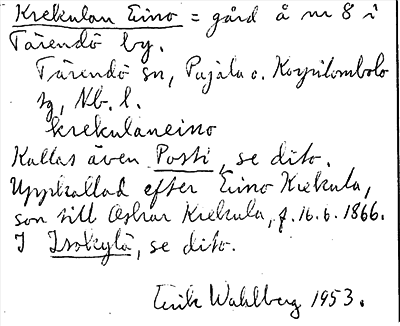 Krekulan Eino = gård å nr 8 i
Tärendö by.
Tärendö sn, Pajala o. Korpilombolo
tg, Nb. l.
krekulaneino
Kallas även Posti, se dito.
Uppkallad efter Eino Krekula,
son till Oskar Krekula, f. 16.6.1866.
I Isokylä, se dito.
Erik Wahlberg 1953.